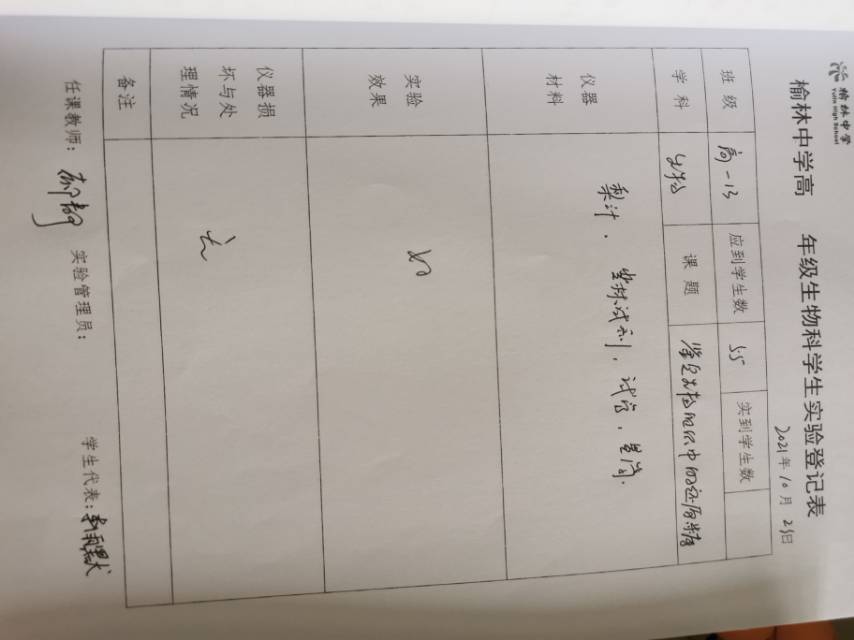 榆林中学
Yulin High School
榆林中学高 年级生物科学生实验登记表
2021年10月25日
班级 高一13 应到学生数 55 实到学生数
学科 生物 课题 鉴定生物组织中的还原糖
仪器材料 梨汁、 斐林试剂、试管、量筒.
实验效果 好
仪器损坏与处理情况 无
备注
任课教师: 实验管理员: 学生代表: